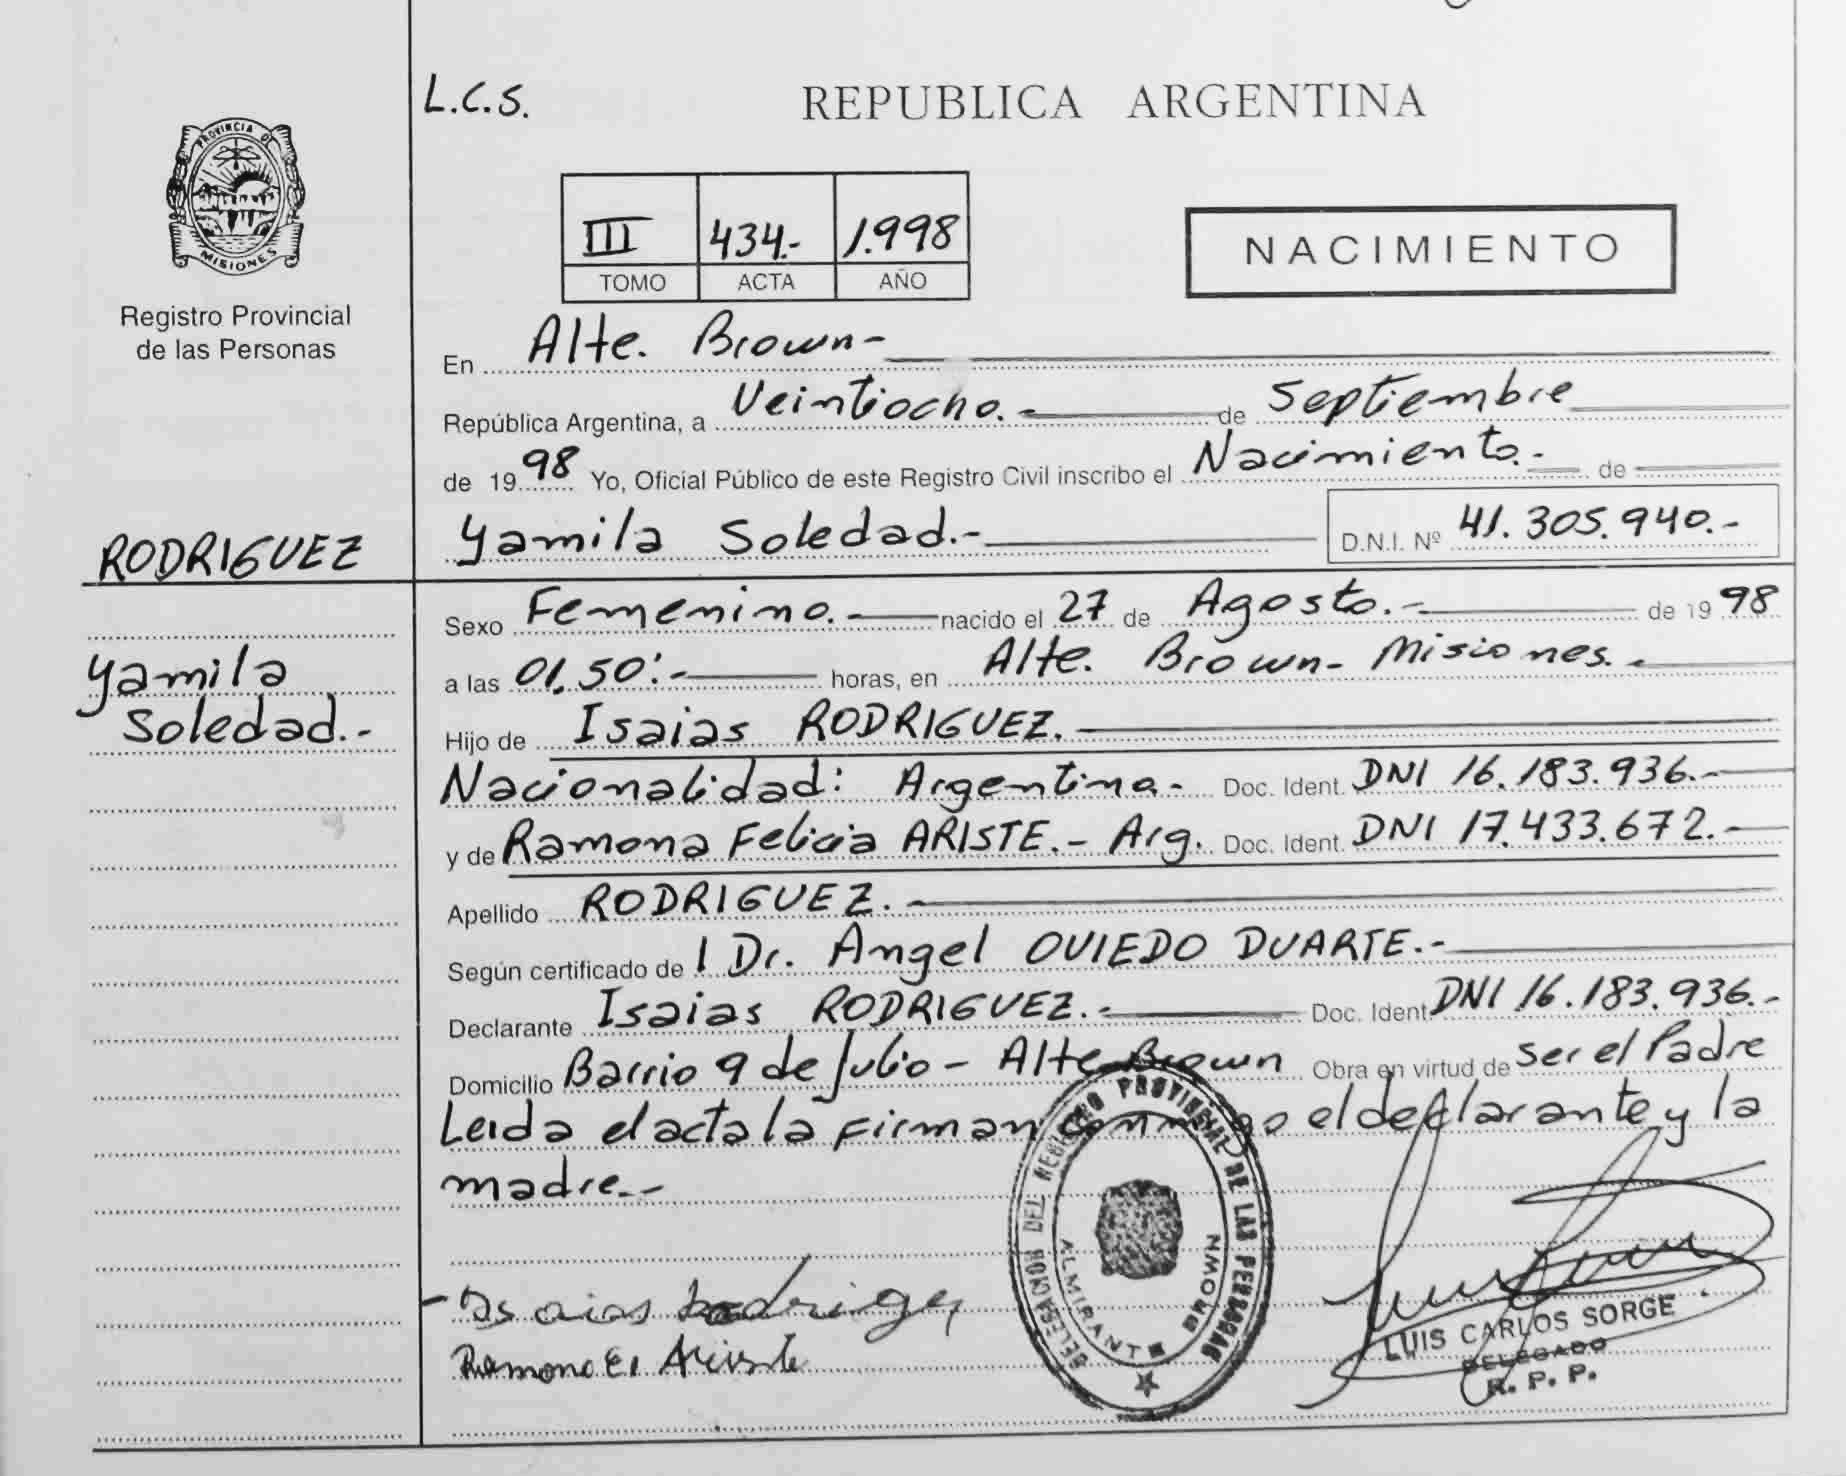 L.C.S.
REPUBLICA ARGENTINA
PROVINCIA DE
MISIONES
Registro Provincial
de las Personas
III 434.- 1.998
TOMO ACTA AÑO
NACIMIENTO
En Alte. Brown-
República Argentina, a Veintiocho.- de Septiembre
de 1998 Yo, Oficial Público de este Registro Civil inscribo el Nacimiento.- de
RODRIGUEZ
Yamila Soledad.- D.N.I. Nº 41.305.940.-
Sexo Femenino.- nacido el 27 de Agosto.- de 1998
Yamila
Soledad.-
a las 01,50:- horas, en Alte. Brown- Misiones.-
Hijo de Isaias RODRIGUEZ.
Nacionalidad: Argentina.- Doc. Ident. DNI 16.183.936.-
y de Ramona Felicia ARISTE.- Arg. Doc. Ident. DNI 17.433.672.-
Apellido RODRIGUEZ.
Según certificado de l Dr. Angel OVIEDO DUARTE.-
Declarante Isaias RODRIGUEZ.- Doc. Ident. DNI 16.183.936.-
Domicilio Barrio 9 de Julio - Alte Brown Obra en virtud de ser el Padre
Leida el acta la firman conmigo el declarante y la
madre.-
DELEGACION DEL REGISTRO PROVINCIAL DE LAS PERSONAS
ALMIRANTE BROWN
Isaias Rodriguez
Ramona Ariste
LUIS CARLOS SORGE
DELEGADO
R. P. P.